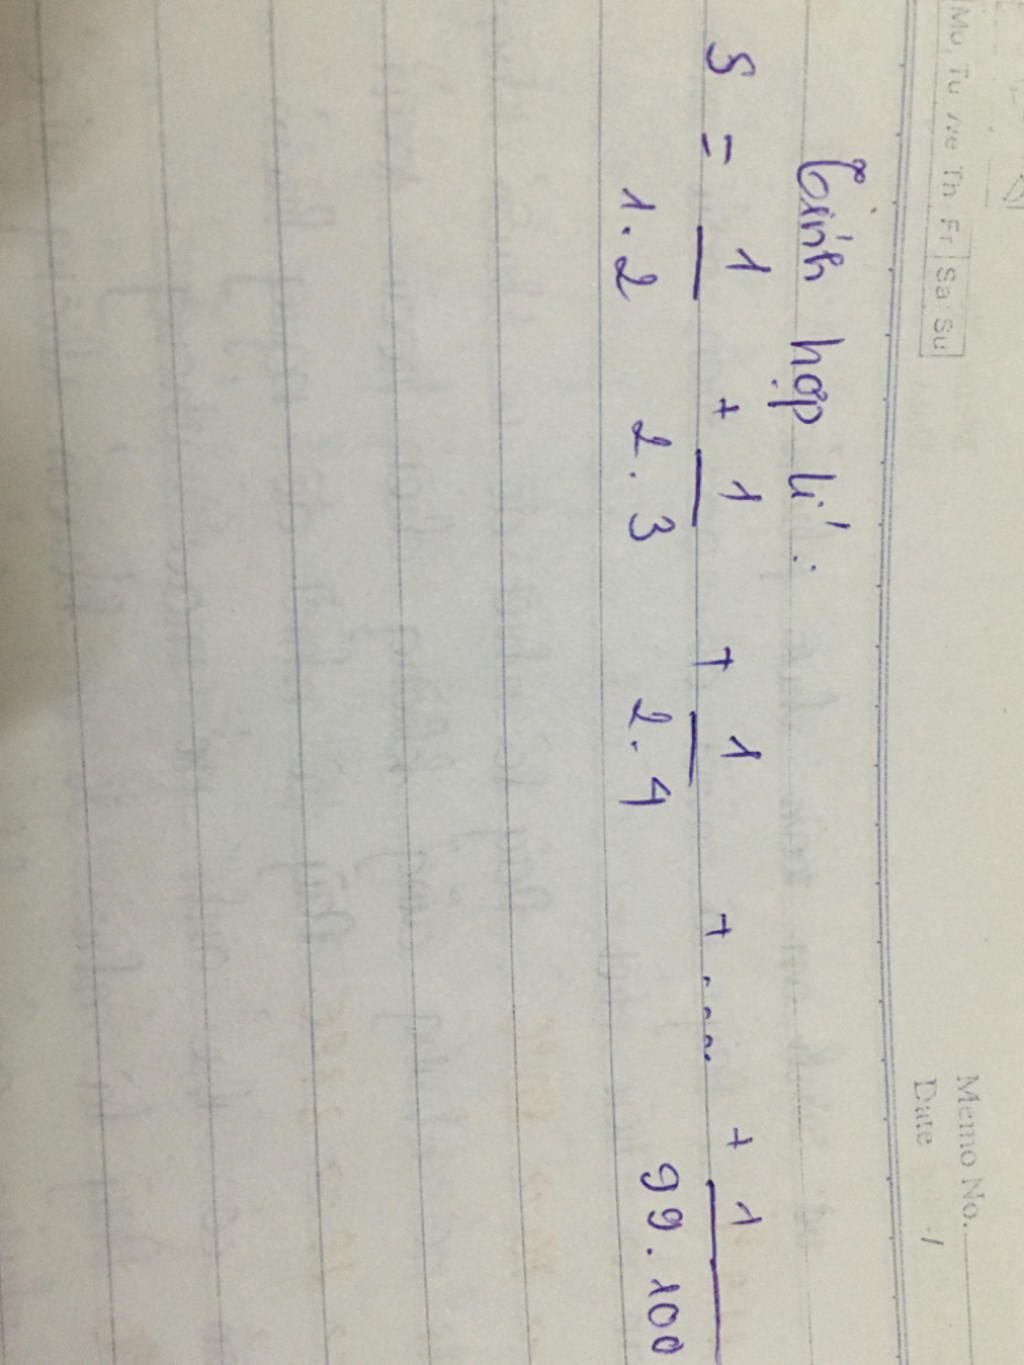 Memo No.
Mo Tu We Th Fr Sa Su
Date /
Tính hợp lí :
S = 1/1.2 + 1/2.3 + 1/2.4 + .... + 1/99.100